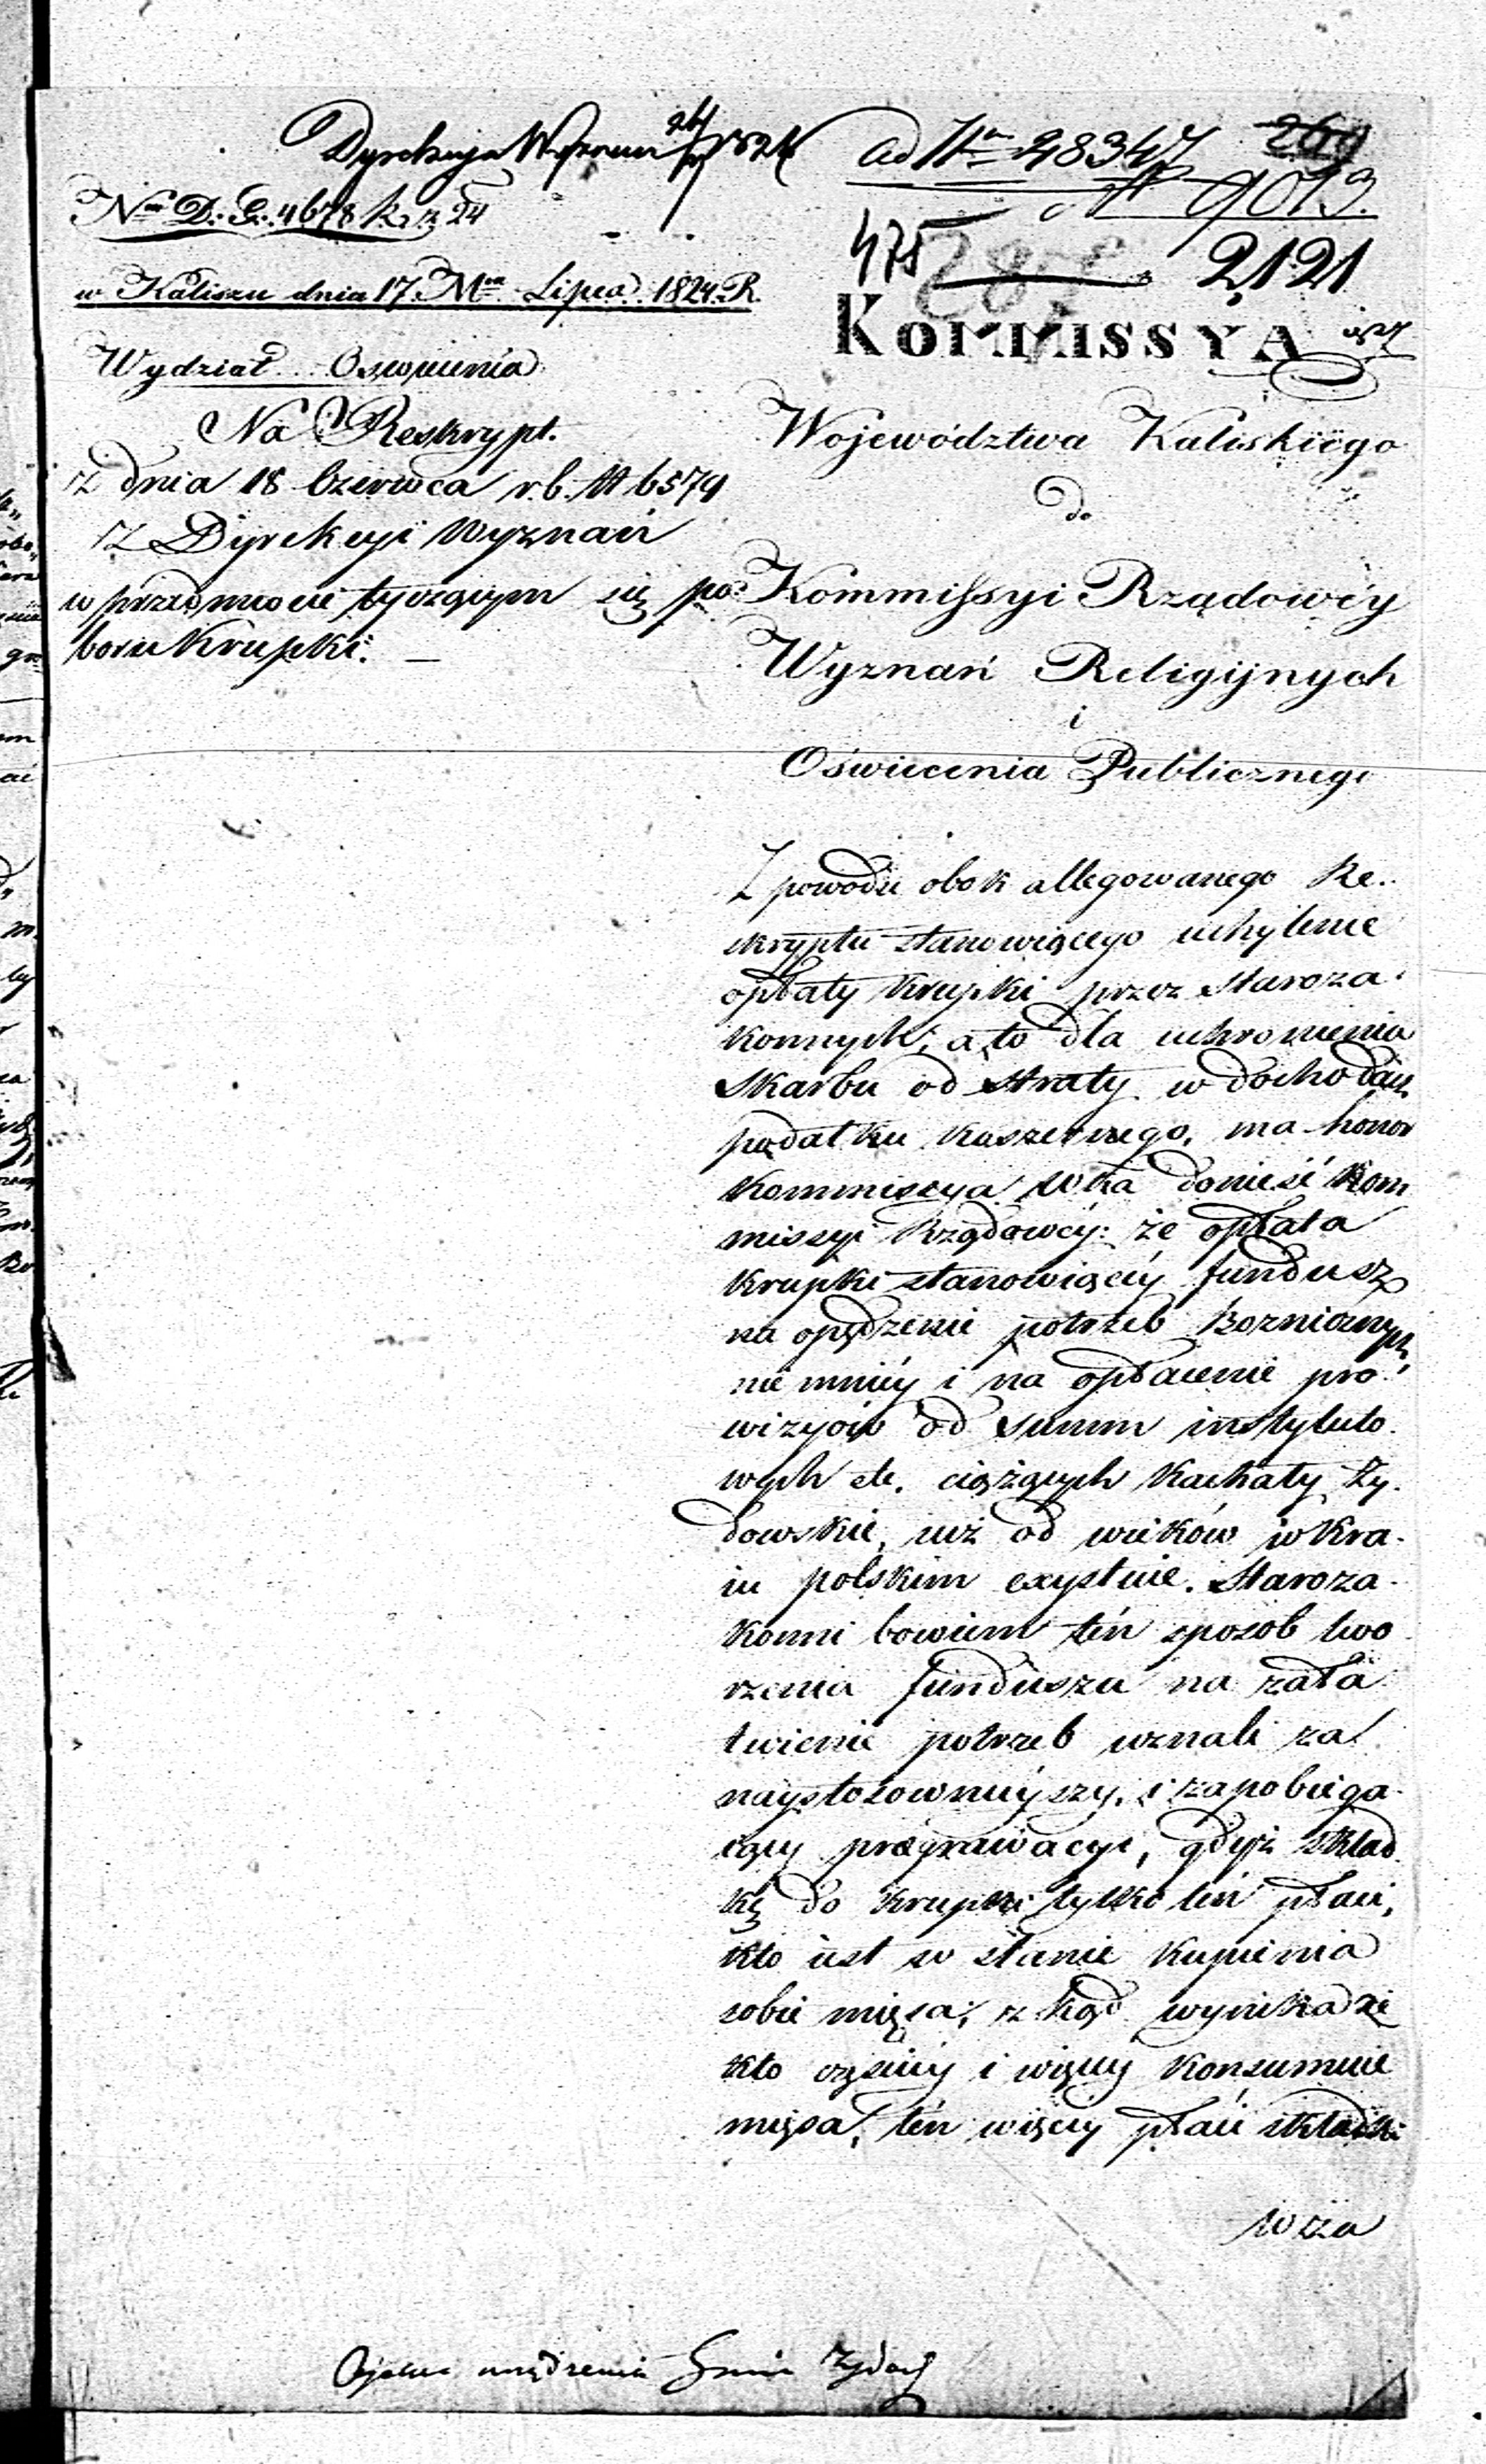 Dyrekcya Wyznań 24/7 1824
ad Nrm 28347
№ 9013.
Nro D. G. 4678 R. z 24
475
2121
w Kaliszu dnia 17 Mca Lipca 1824 R.
KOMMISSYA
Wydział Oswiecenia
Na Reskrypt.
z dnia 18 Czerwca r. b. № 6579
z Dyrekcyi Wyznań
w przedmiocie tyczącym się po-
boru Krupki. —
Województwa Kaliskiego
do
Kommissyi Rządowéy
Wyznań Religijnych
i
Oświecenia Publicznego
Z powodu obok allegowanego Re-
skryptu stanowiącego uchylenie
opłaty Krupki przez Staroza-
konnych, a to dla uchronienia
Skarbu od straty w dochodach
podatku koszernego, ma honor
Kommissya Wka donieść Kom
missyi Rządowéy: że opłata
Krupki stanowiącéy fundusz
na opędzenie potrzeb Bozniczych,
nie mniéy i na opłacenie pro-
wizyów od summ instytuto-
wych etc. ciążących Kachały Ży-
dowskie, iuż od wieków w Kra-
iu polskim exystuie. Staroza-
konni bowiem tén sposob two
rzenia funduszu na zała-
twienie potrzeb uznali za
naystosownieyszy, i zapobiega-
iący pregrawacyi, gdyż skład-
kę do Krupki tylko tén płaci,
kto iest w stanie kupienia
sobie mięsa; z kąd wynika że
kto częściéy i więcéy konsumuie
mięsa, tén więcéy płaci składki
wza
urządzenia Gmin Żydow